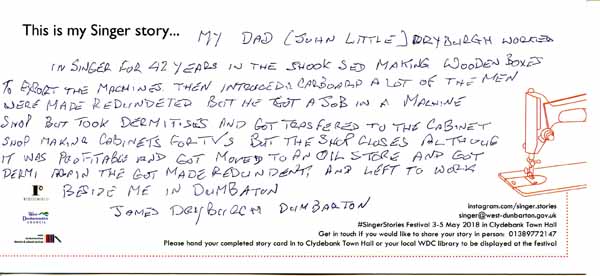 This is my Singer story...
MY DAD (JOHN LITTLE) DRYBURGH WORKED
IN SINGER FOR 42 YEARS IN THE SHOOK SED MAKING WOODEN BOXES
TO EXPORT THE MACHINES. THEN INTRUCED CARBOARD A LOT OF THE MEN
WERE MADE REDUNDETED BUT HE GOT A JOB IN A MACHINE
SHOP BUT TOOK DERMITISES AND GOT TRASFERED TO THE CABINET
SHOP MAKING CABINETS FOR TVS BUT THE SHOP CLOSES ALTHOUG
IT WAS PROFITABLE AND GOT MOVED TO AN OIL STORE AND GOT
DERMI AGAIN THE GOT MADE REDUNDENT, AND LEFT TO WORK
BESIDE ME IN DUMBATON
JAMES DRYBURGH DUMBARTON
West Dunbartonshire COUNCIL
instagram.com/singer.stories
singer@west-dunbarton.gov.uk
#SingerStories Festival 3-5 May 2018 in Clydebank Town Hall
Get in touch if you would like to share your story in person: 01389772147
Please hand your completed story card in to Clydebank Town Hall or your local WDC library to be displayed at the festival